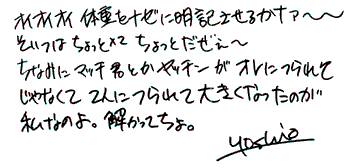 オイオイオイ 体重をナゼに明記させるかナァ〜〜
そいつは ちょっと×2 ちょっとだぜぇ〜
ちなみに マッチ君とかヤッチンが オレにつられて
じゃなくて 2人につられて大きくなったのが
私なのよ。解かってちょ。
yoshio